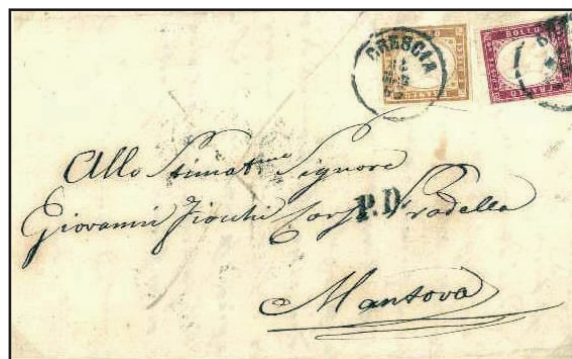 BRESCIA
Allo Stimat.mo Signore
P.D.
Giovanni Fiocchi Corso Pradella
Mantova